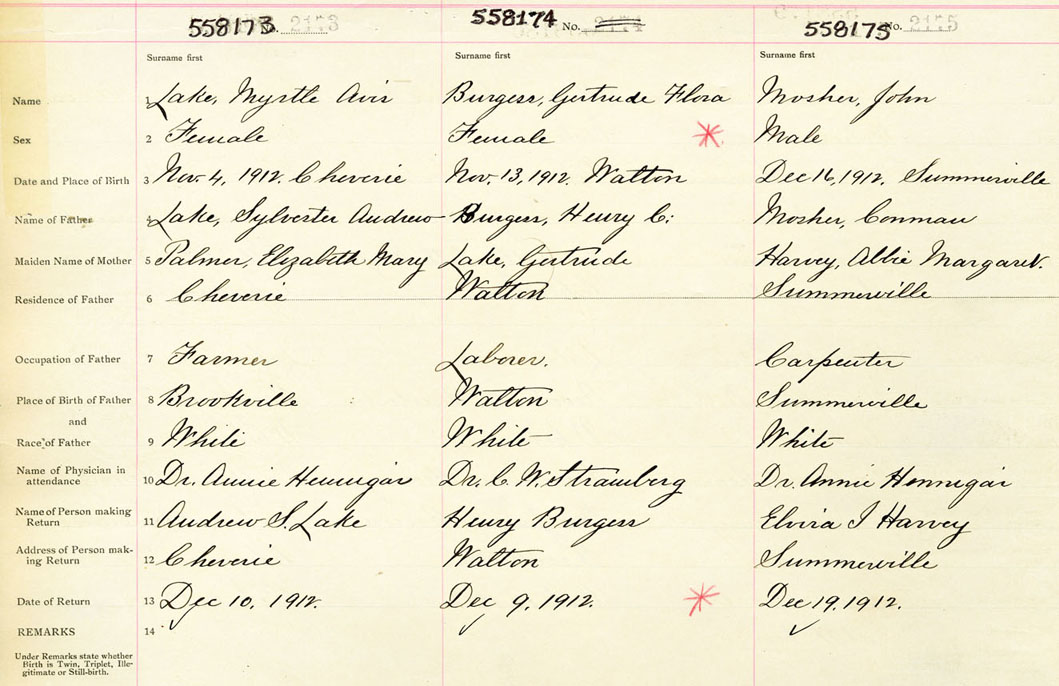 558173 No. 2173 558174 No. 2174 558175 No. 2175
Surname first Surname first Surname first
Name 1 Lake, Myrtle Avis Burgess, Gertrude Flora Mosher, John
Sex 2 Female Female * Male
Date and Place of Birth 3 Nov. 4, 1912. Cheverie Nov. 13, 1912. Walton Dec 16, 1912. Summerville
Name of Father 4 Lake, Sylvester Andrew Burgess, Henry C. Mosher, Conman
Maiden Name of Mother 5 Palmer, Elizabeth Mary Lake, Gertrude Harvey, Abbie Margaret.
Residence of Father 6 Cheverie Walton Summerville
Occupation of Father 7 Farmer Laborer. Carpenter
Place of Birth of Father 8 Brookville Walton Summerville
and
Race of Father 9 White White White
Name of Physician in
attendance 10 Dr. Annie Hennigar Dr. C. W. Stramberg Dr. Annie Hennigar
Name of Person making
Return 11 Andrew S. Lake Henry Burgess Elvira J Harvey
Address of Person mak-
ing Return 12 Cheverie Walton Summerville
Date of Return 13 Dec 10, 1912. Dec 9, 1912. * Dec 19, 1912.
REMARKS 14
Under Remarks state whether
Birth is Twin, Triplet, Ille-
gitimate or Still-birth.